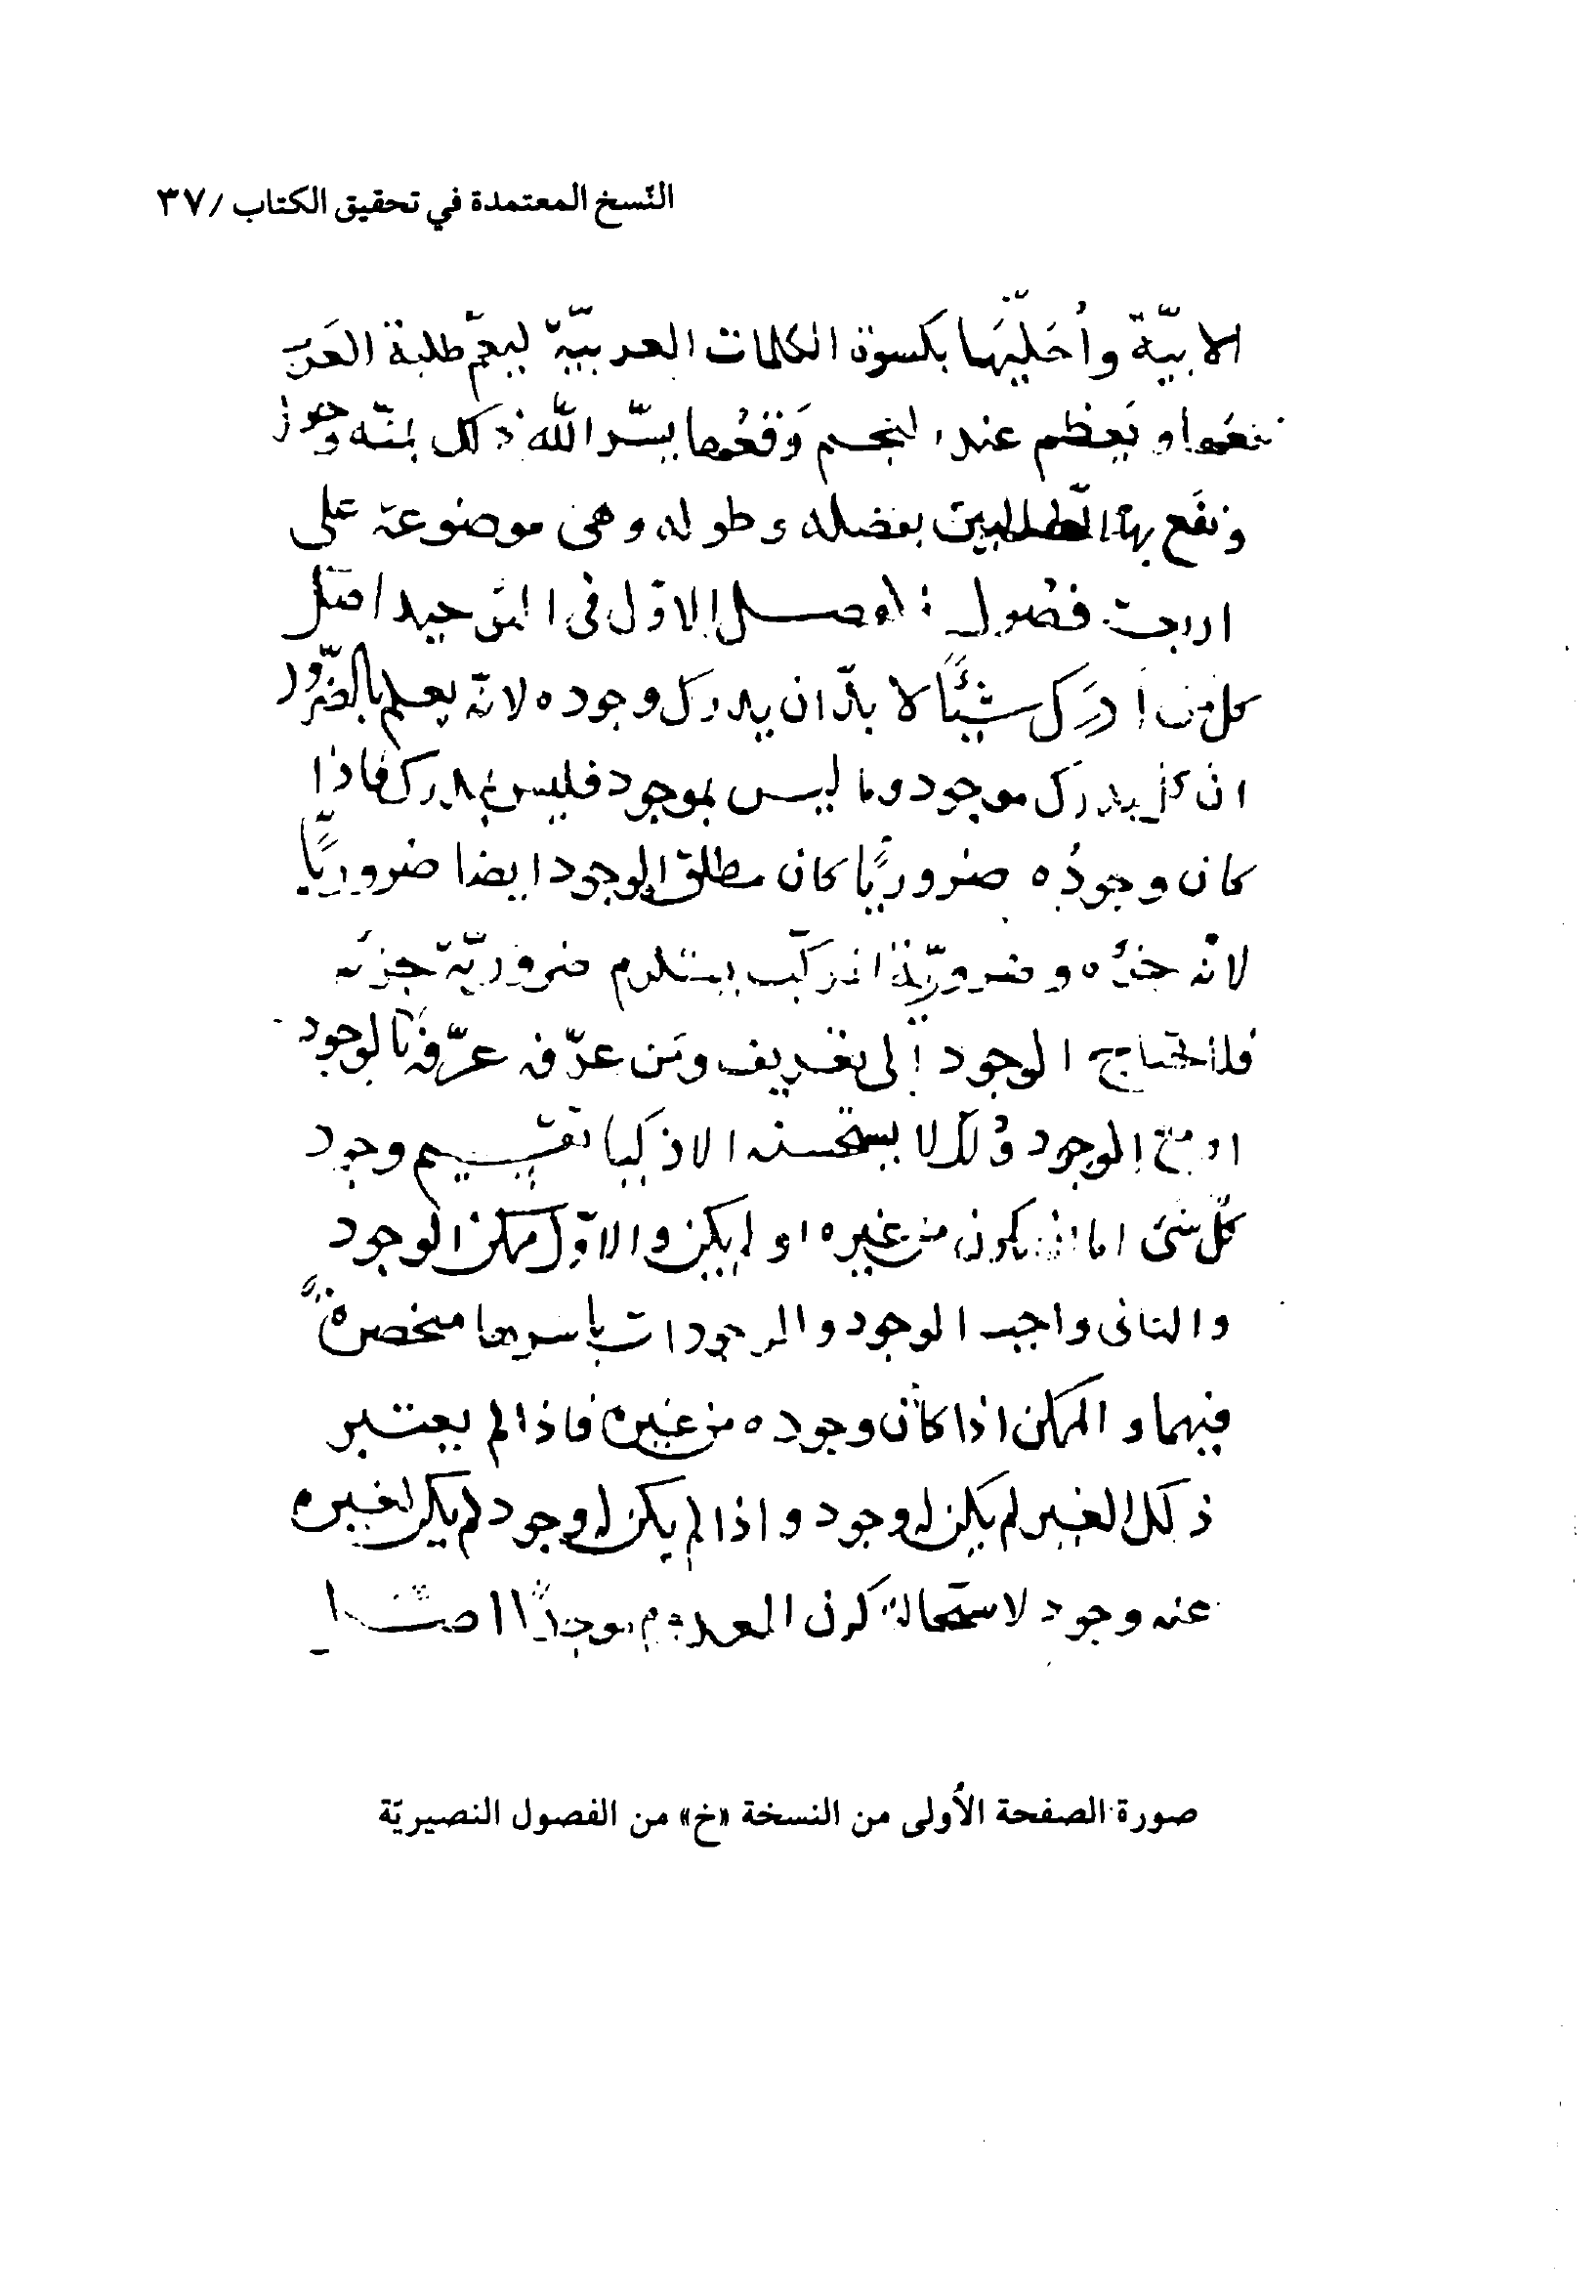 النّسخ المعتمدة في تحقيق الكتاب /٣٧
الابيّة وأحَلّيَها بكسوة الكلمات العربيّة ليعمّ طلبة العَرَب
نفعها و يَعظم عند وَقعُها يسّر الله ذلك بمنّه وجوده
ونفَع بها الطالبين بفضله وطوله وهى موضوعة على
اربعة فصول الفصل الاوّل فى التوحيد اصل
كل من أدرَك شيئًا لا بدّ ان يدرك وجوده لانّه يعلم بالضّرور
ان كل يدرك موجود وما ليس بموجود فليس بمدرك فاذا
كان وجودُه ضروريًا كان مطلق الوجود ايضا ضروريًا
لانه جزؤه وضروريّة المركّب يستلزم ضروريّة جزئه
فلا يحتاج الوجود إلى تعريف ومَن عرّفه عرّفه بالوجود
او مع الوجود وذلك لا يستحسنه الاذكيا تقسيم وجود
كلّ شئ اما ان يكون من غيره او لم يكن والاوّل ممكن الوجود
والثانى واجب الوجود والموجودات باسرها منحصرةً
فيهما و الممكن اذا كان وجوده من غيره فاذا لم يعتبر
ذلك الغير لم يكن له وجود واذا لم يكن له وجود لم يكن لغيره
عنه وجود لاستحالة كون المعدوم موجدًا
صورة الصفحة الأولى من النسخة «خ» من الفصول النصيريّة